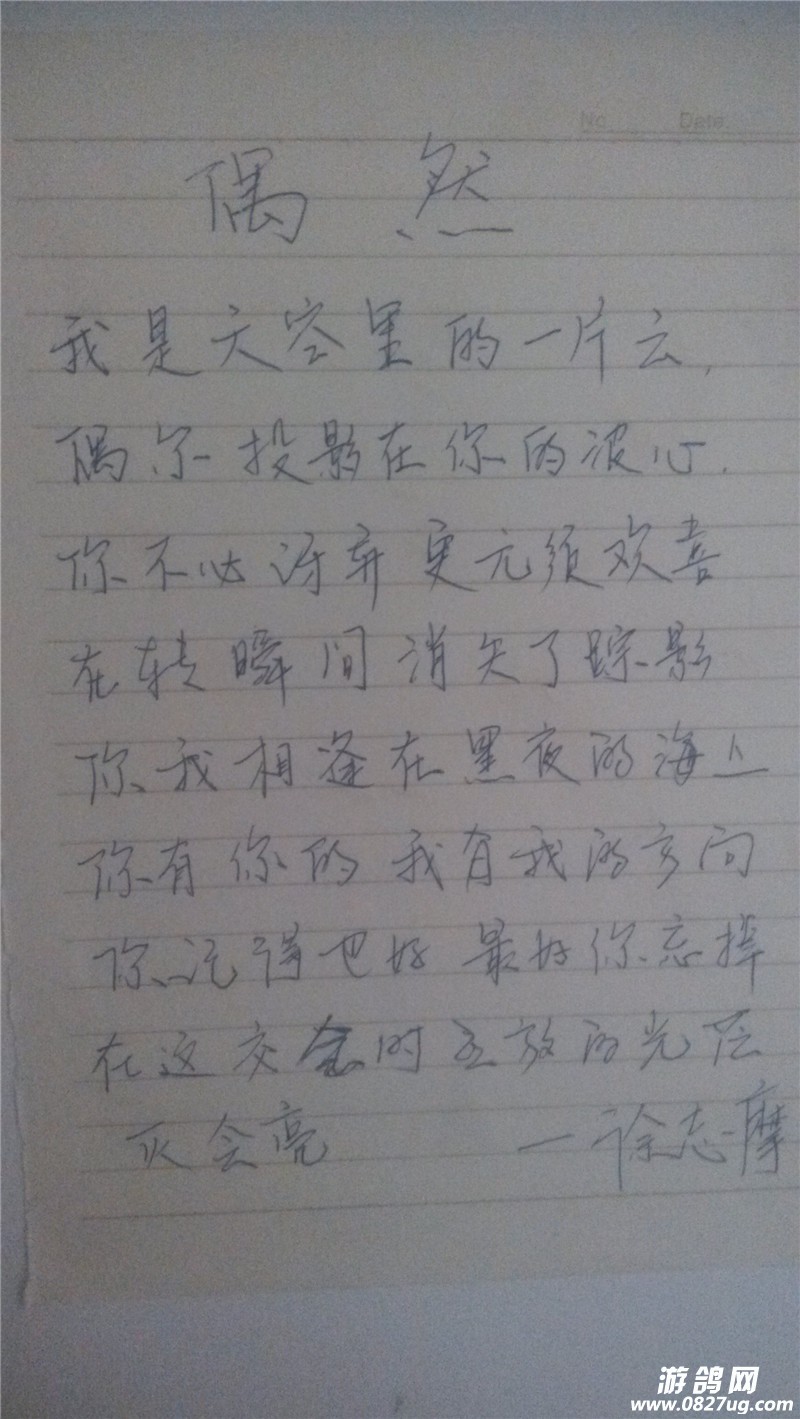 No. Date.
偶然
我是天空里的一片云,
偶尔投影在你的波心.
你不必讶弃更无须欢喜
在转瞬间消失了踪影
你我相逢在黑夜的海上
你有你的我有我的方向
你记得也好 最好你忘掉
在这交会时互放的光
灰会亮 一徐志摩
游鸽网
www.0827ug.com